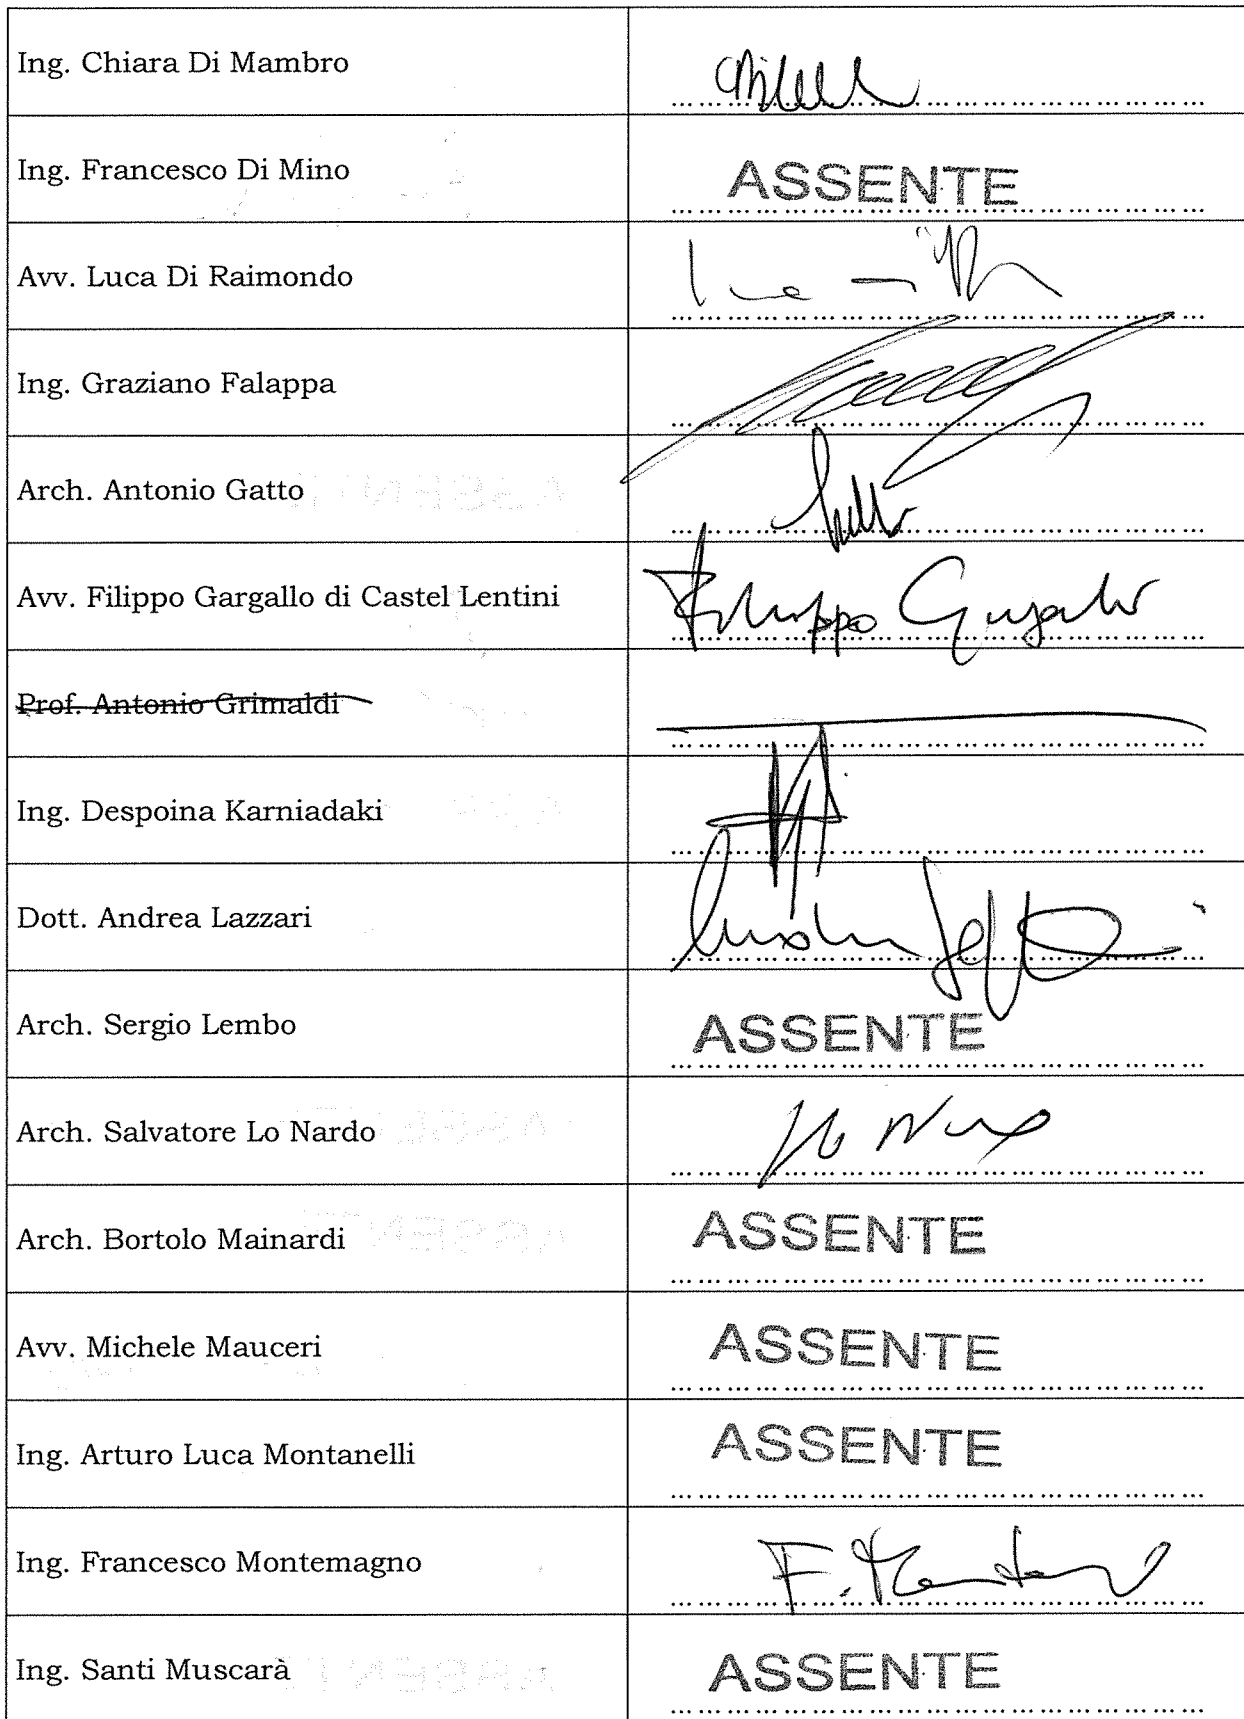 Ing. Chiara Di Mambro
Ing. Francesco Di Mino ASSENTE
Avv. Luca Di Raimondo
Ing. Graziano Falappa
Arch. Antonio Gatto
Avv. Filippo Gargallo di Castel Lentini Filippo Gargallo
Prof. Antonio Grimaldi
Ing. Despoina Karniadaki
Dott. Andrea Lazzari
Arch. Sergio Lembo ASSENTE
Arch. Salvatore Lo Nardo
Arch. Bortolo Mainardi ASSENTE
Avv. Michele Mauceri ASSENTE
Ing. Arturo Luca Montanelli ASSENTE
Ing. Francesco Montemagno
Ing. Santi Muscarà ASSENTE